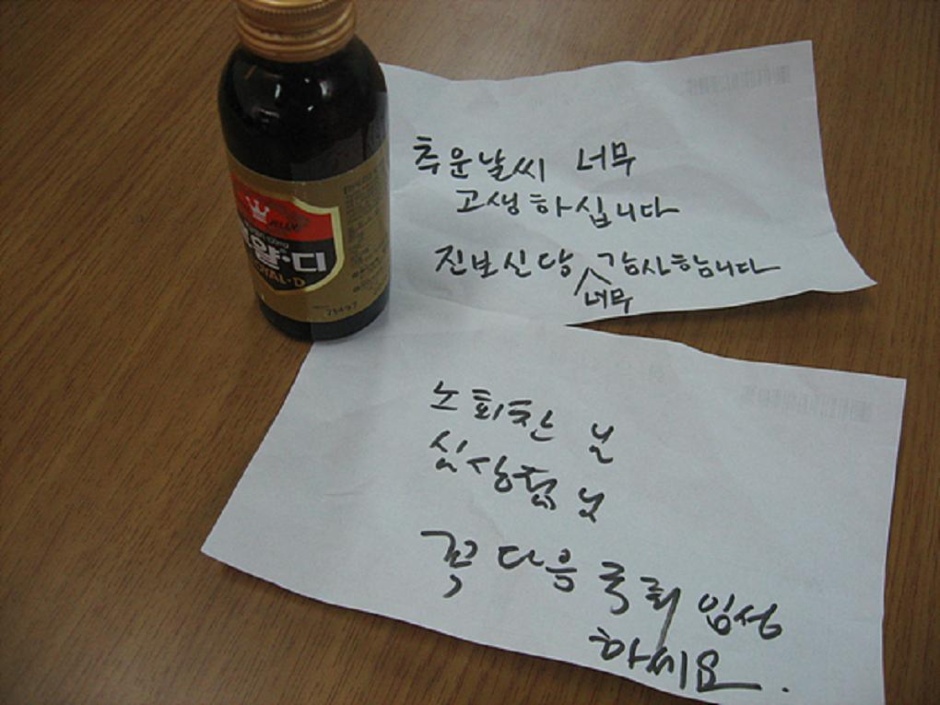 얄·디
추운날씨 너무
고생하십니다
진보신당 감사합니다
너무
노회찬 님
심상정 님
꼭 다음 국회 입성
하씨요.